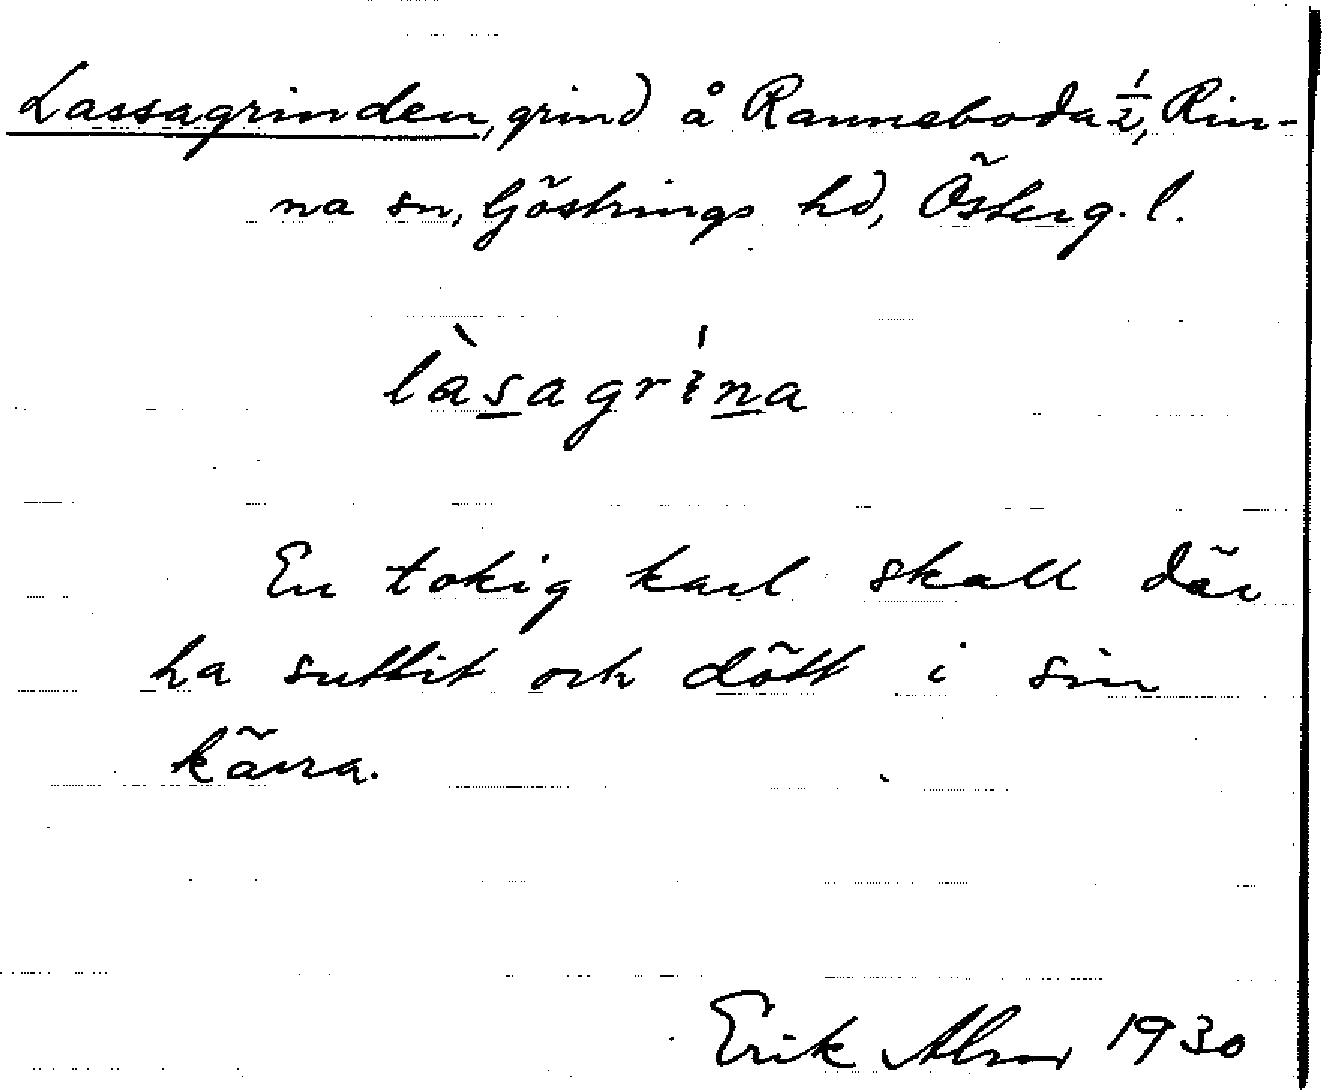 Lassagrinden, grind å Ranneboda 1/2, Rin-
na sn, Göstrings hd, Österg. l.
làsagrína
En tokig karl skall där
ha suttit och dött i sin
kärra.
Erik Abrn 1930